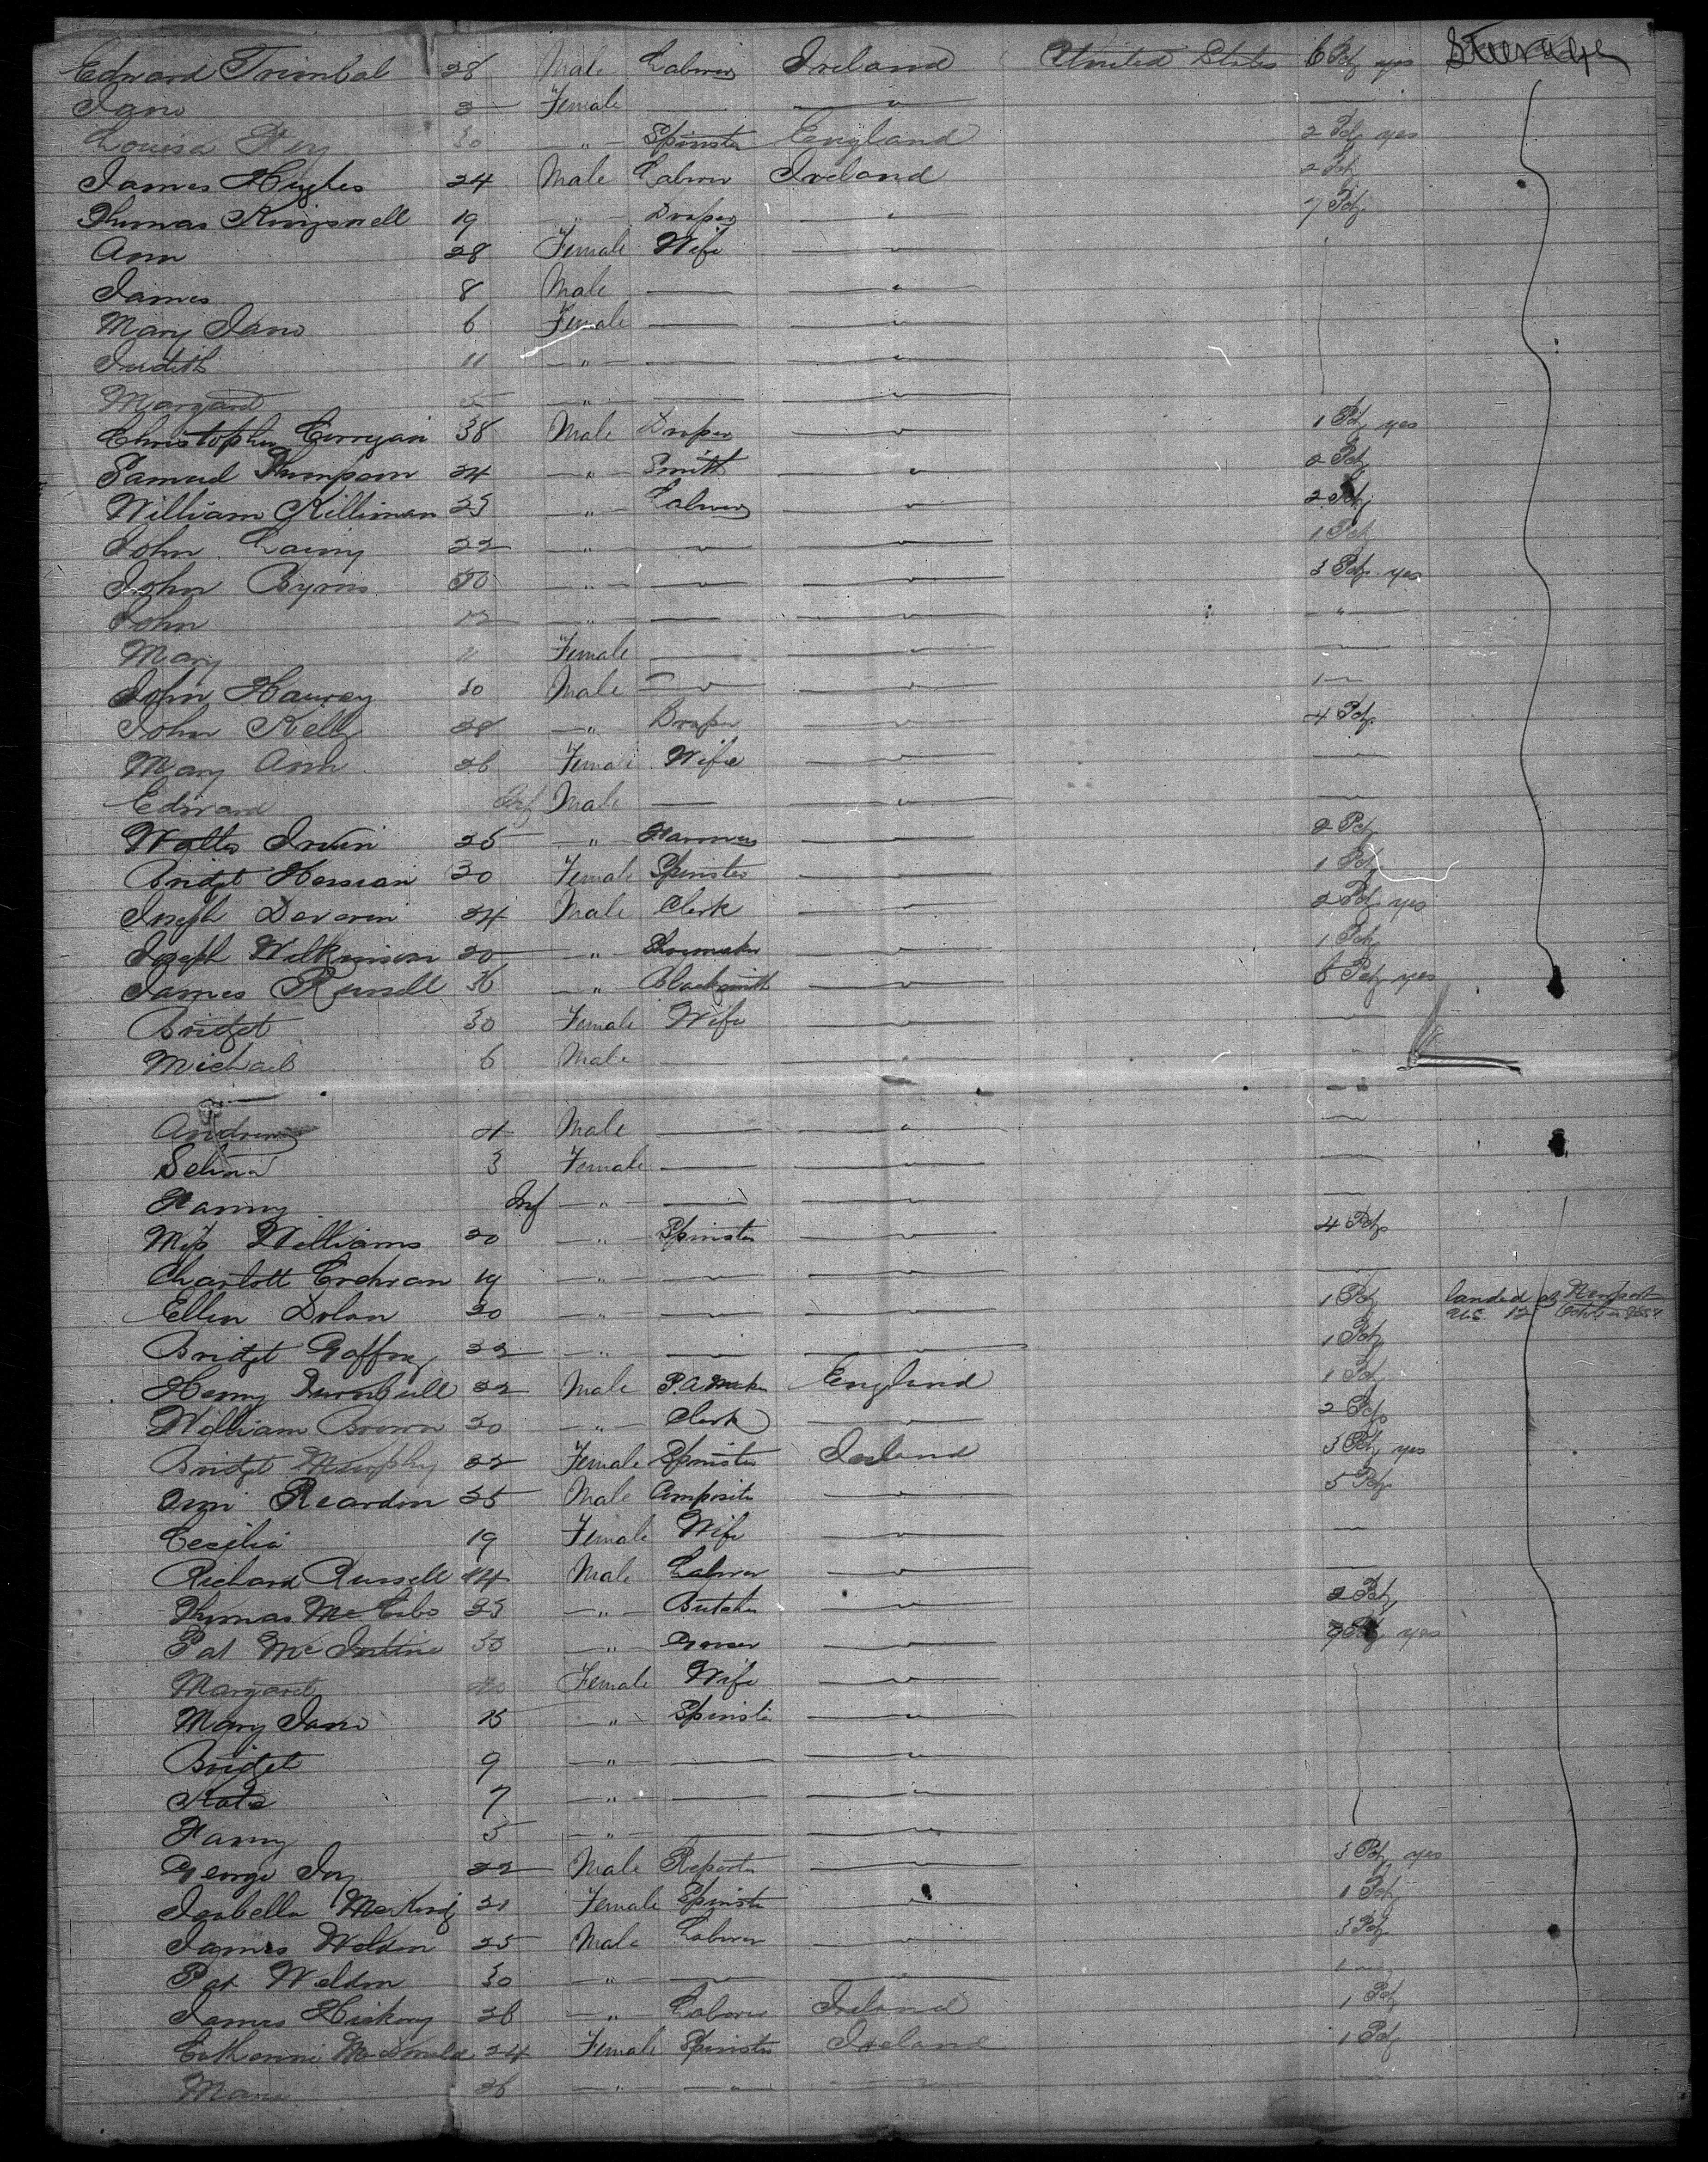 Edward Trimbal 28 Male Labourer Ireland United States 6 Pkg yes Steerage
Jane 2 Female — — " —
Louisa 30 — " — Spinster England 2 Pkg yes
James Hughes 24 Male Labourer Ireland 2 Pkg
Thomas Kingsnell 19 — " — Draper — " — 7 Pkg
Ann 28 Female Wife — " —
James 8 Male — — " —
Mary Jane 6 Female — — " —
Judith 11 — " — — — " —
Margaret — " — — — " —
Christopher Corrigan 38 Male Draper — " — 1 Pkg yes
Samuel Thompson 24 — " — Smith — " — 2 Pkg
William Killiman 23 — " — Labourer — " — 2 Pkg
John 22 — " — — " — — " — 1 Pkg
John Byrns 50 — " — — " — — " — 3 Pkg yes
John 12 — " — — — " — — " —
Mary 11 Female — — " — —
John 30 Male — " — — " — 1 —
John Kelly 28 — " — Draper — " — 4 Pkg
Mary Ann 26 Female Wife — " — —
Edward Inf Male — — " — —
Walter Irwin 25 — " — Farmer — " — 2 Pkg
Bridgt Hessian 30 Female Spinster — " — 1 Pkg
Joseph Deveren 24 Male Clerk — " — 2 Pkg yes
Joseph Wilkinson 20 — " — Shoemaker — " — 1 Pkg
James Russell 36 — " — Blacksmith — " — 6 Pkg yes
Bridget 30 Female Wife — " — —
Michael 6 Male — — " —
Andrew 4 Male — — " — —
Selina 3 Female — — " — —
Fanny Inf — " — — — " — —
Miss Williams 20 — " — Spinster — " — 4 Pkgs
Charlott Cochran 19 — " — — " — — " — —
Ellen Dolan 20 — " — — " — — " — 1 Pkg landed at Newport
U.S. 12 October
Bridget Gaffney 22 — " — — " — — " — 1 Pkg
Henry Turnbull 22 Male England 1 Pkg
William Brown 30 — " — Clerk — " — 2 Pkgs
Bridget Murphy 22 Female Spinster Ireland 3 Pkg yes
Reardon 25 Male Composite — " — 5 Pkgs
Cecilia 19 Female Wife — " — —
Richard Russell 44 Male Labourer — " — —
Thomas McCabe 23 — " — Butcher — " — 2 Pkg
Pat McIntine 50 — " — Grocer — " — 7 Pkg yes
Margaret 40 Female Wife — " —
Mary Jane 15 — " — Spinster — " —
Bridget 9 — " — — — " —
Kate 7 — " — — — " —
Fanny 5 — " — — — " —
George Joy 22 Male Reporter — " — 3 Pkg yes
Isabella 21 Female Spinster — " — 1 Pkg
James Weldon 25 Male Labourer — " — 3 Pkg
Pat Weldon 30 — " — — " — — " — 1
James Hickey 26 — " — Labourer Ireland 1 Pkg
Catherine McDonald 24 Female Spinster Ireland 1 Pkg
26 — " — — " — — " — —